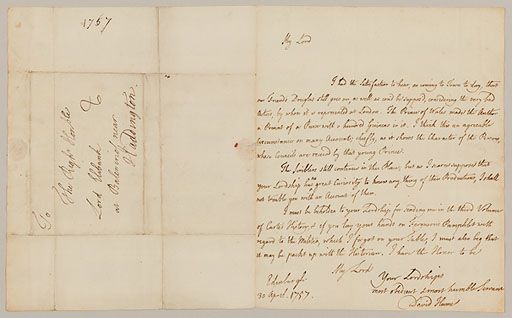 1757
To
The Right Honble
Lord Elibank
at Ballencrief near
Haddington
My Lord
I had the Satisfaction to hear, on coming to Town to day, that
our Friends Douglas still goes on, as well as could be suppos'd, considering the very bad
Actors, by whom it is represented at London. The Prince of Wales made the Author
a Present of a Purse with a hundred Guineas in it. I think this an agreeable
Circumstance on many Accounts; chiefly, as it shows the Character of the Persons,
whose Counsels are receiv'd by that young Prince.
The Scriblers still continue in this Place; but as I never suppos'd that
your Lordship has great Curiosity to know any thing of their Productions, I shall
not trouble you with an Account of them.
I must be beholden to your Lordship for sending me in the third Volume
of Carte's History; & if you lay your hands on Fergusons Pamphlet with
regard to the Militia, which I forgot on your Table, I must also beg that
it may be packt up with the Historian. I have the Honor to be
My Lord
Your Lordships
most obedient & most humble Servant
David Hume
Edinburgh
30 April. 1757.